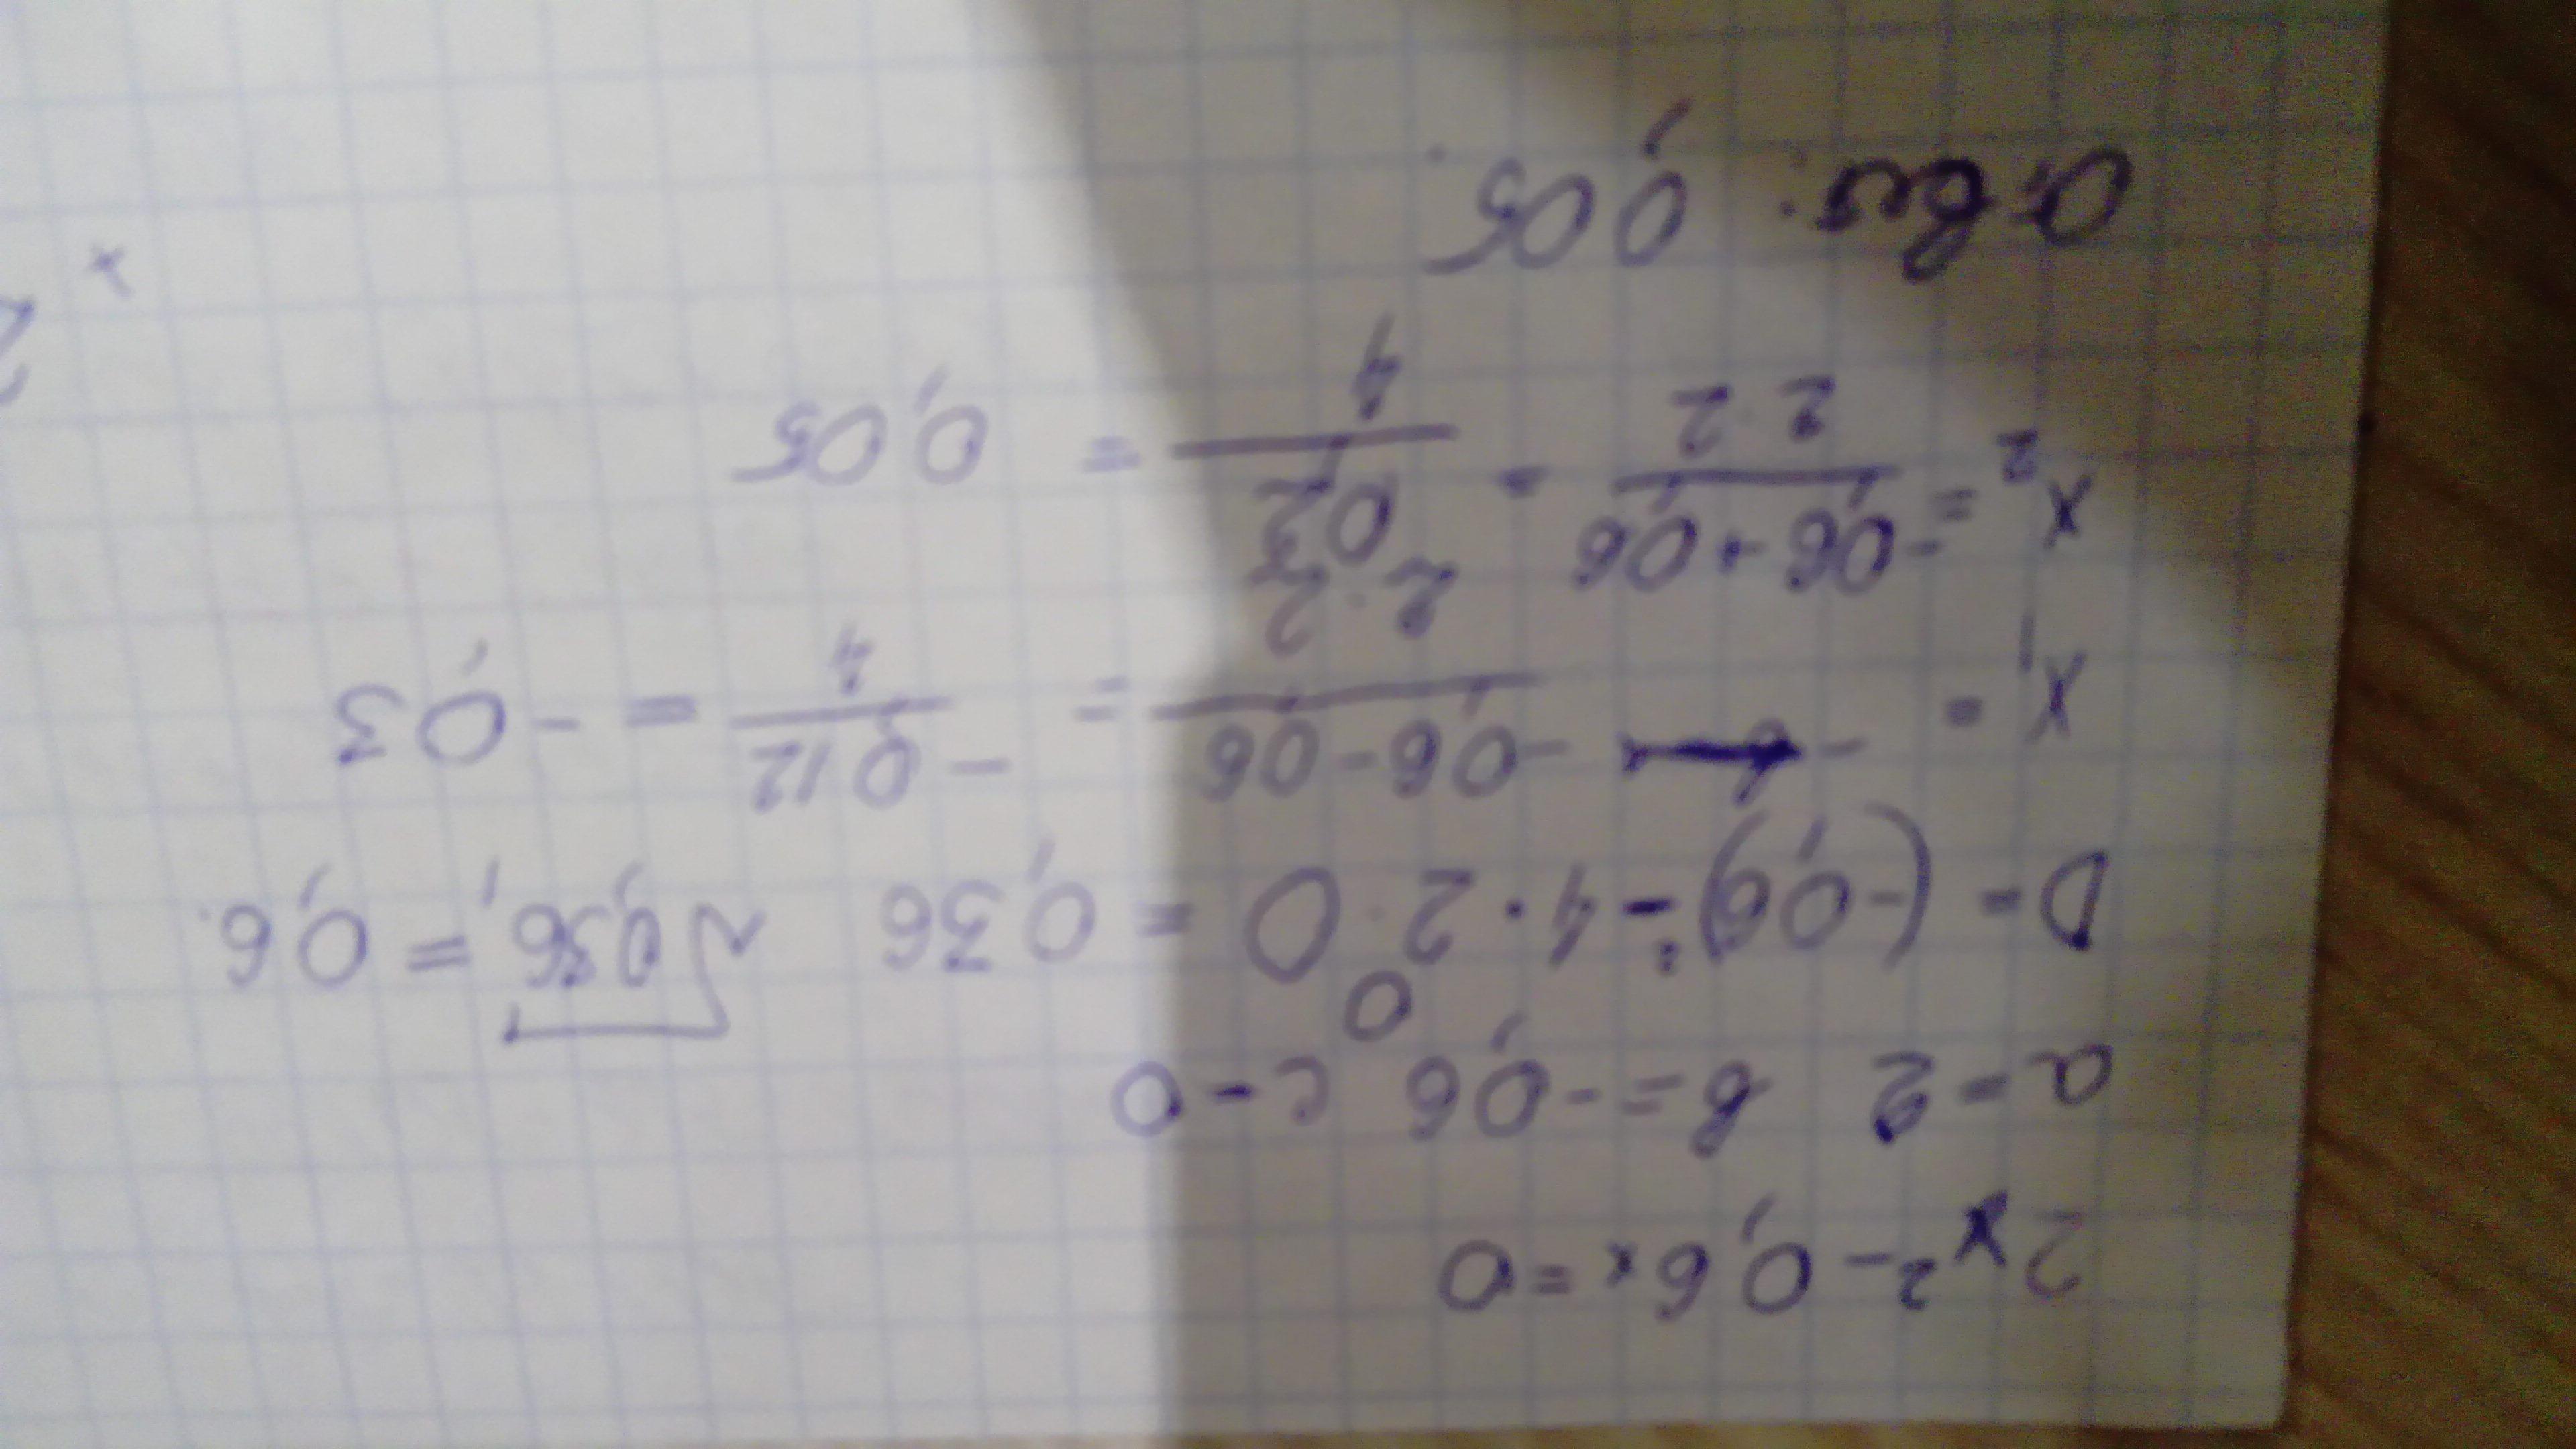 2x² - 0,6x = 0
a = 2 b = -0,6 c = 0
0
D = (-0,6)² - 4 · 2 · 0 = 0,36 √0,36 = 0,6.
x₁ = -0,6 - 0,6 / 2 · 2 = -0,12 / 4 = -0,3
x₂ = -0,6 + 0,6 / 2 · 2 = 0,2 / 4 = 0,05
Ответ: 0,05.